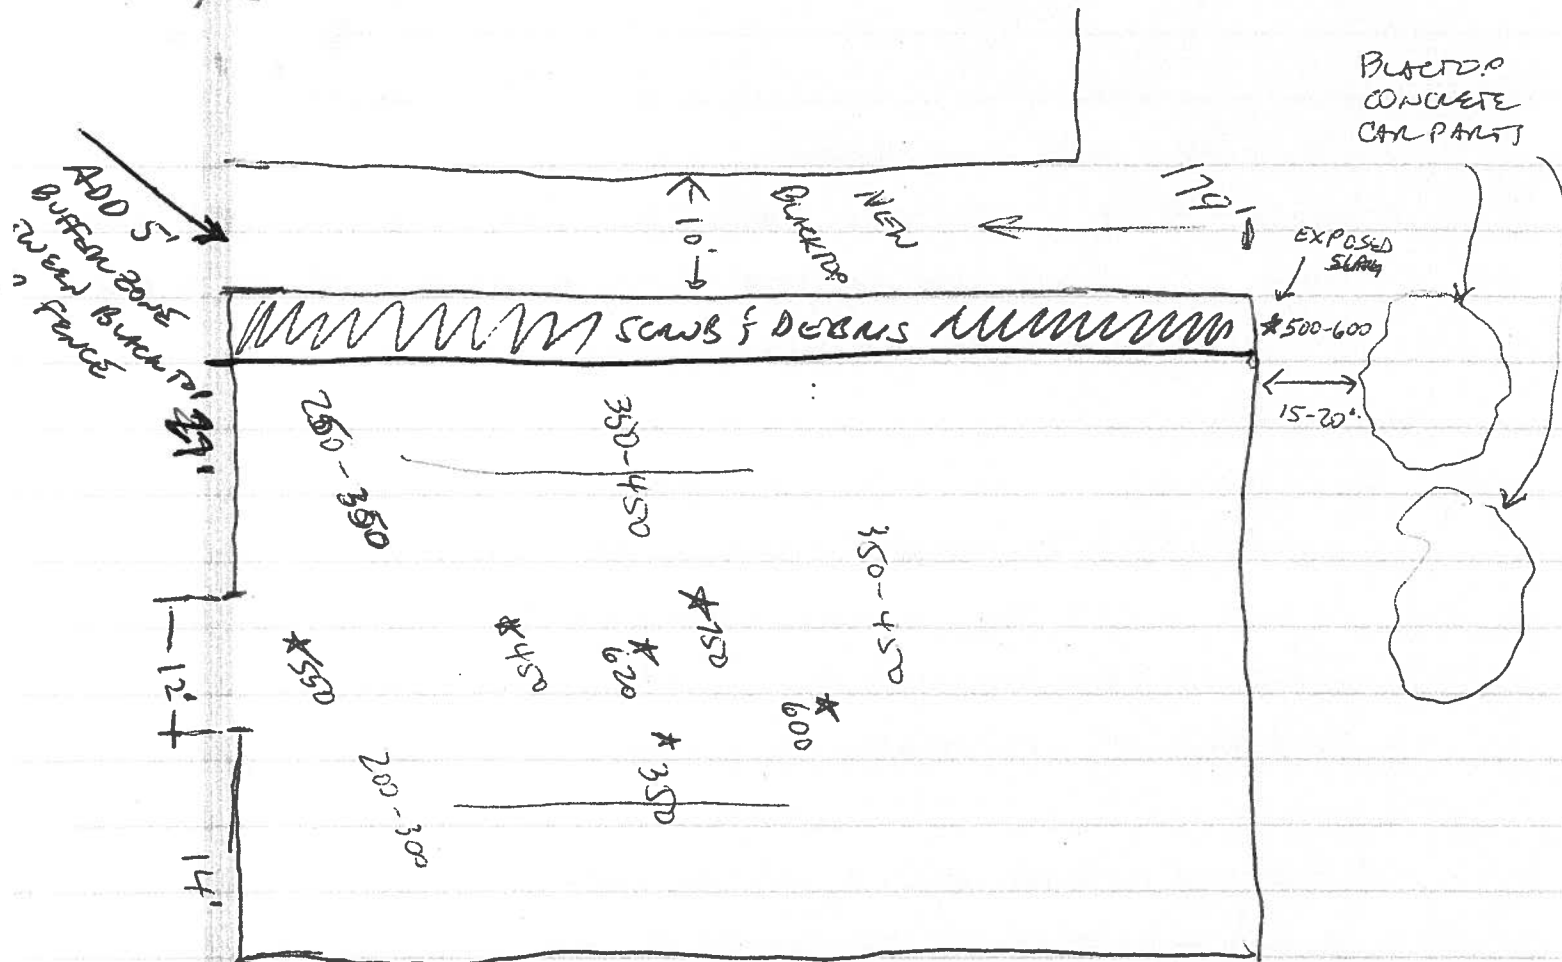 BLACKTOP
CONCRETE
CAR PARTS
ADD 5'
BUFFER ZONE
TWEEN BLACK TOP
FENCE
10'
NEW
BLACKTOP
179'
EXPOSED
SLAG
SCRUB & DEBRIS
*500-600
15-20'
350-450
350-450
12'
*550
*450
*620
*750
*600
*350
200-300
14'